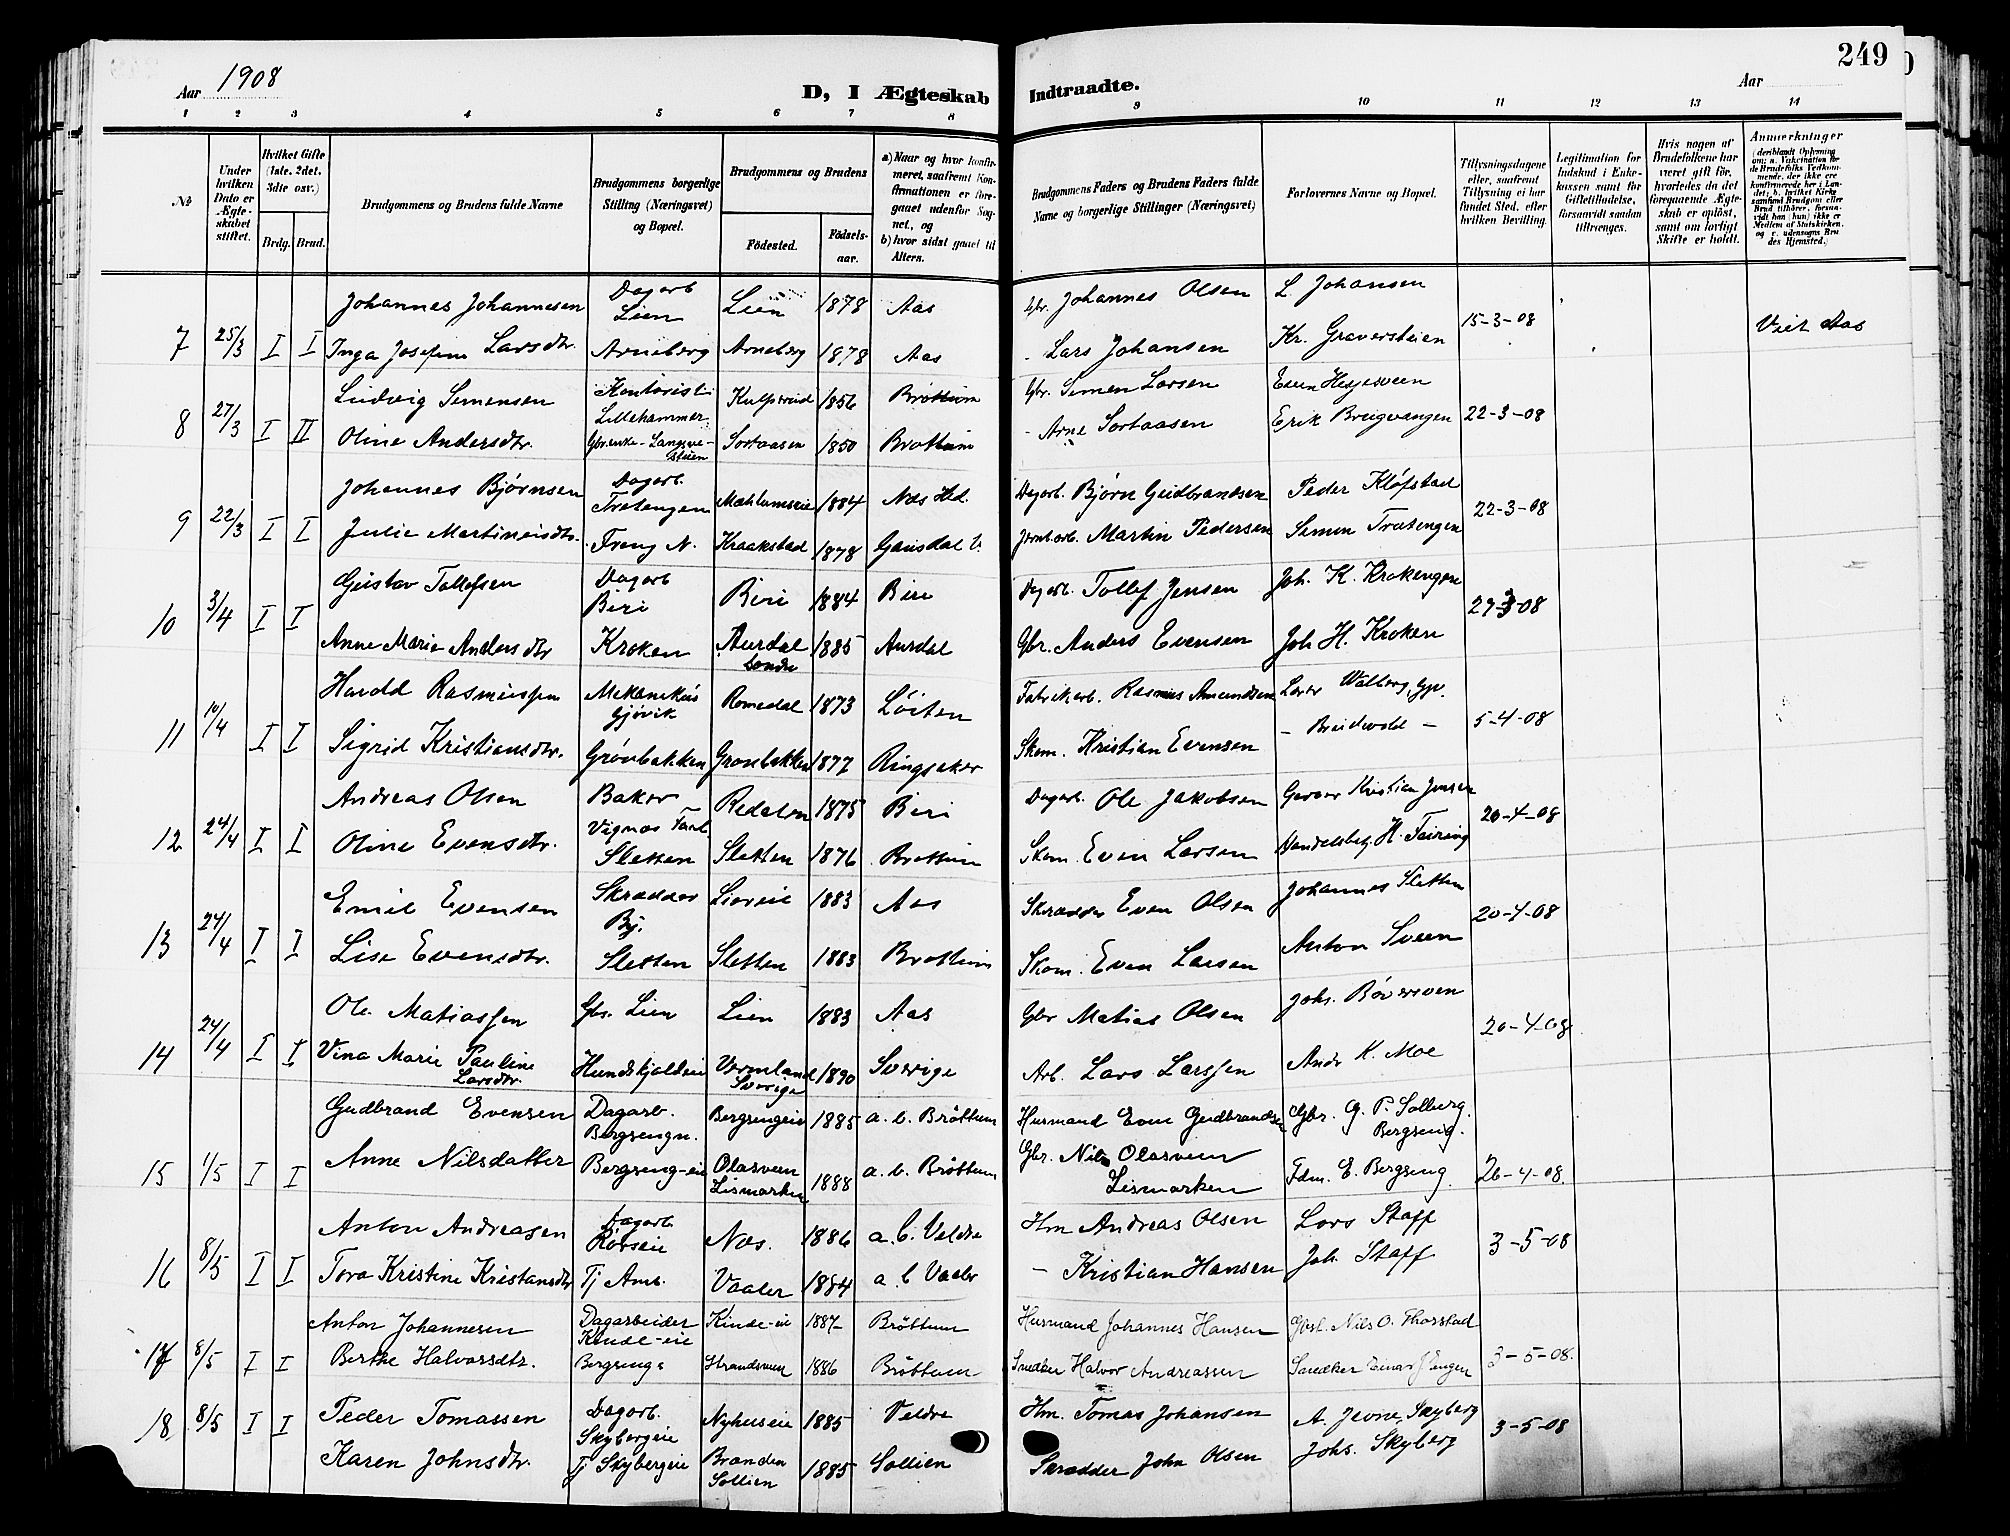 249
Aar 1908
D, I Ægteskab Indtraadte.
Aar
1 2 3 4 5 6 7 8 9 10 11 12 13 14
No
Under hvilken Dato er Ægteskabet stiftet.
Hvilket Gifte (1ste, 2det, 3dte osv.)
Brdg. Brud.
Brudgommens og Brudens fulde Navne
Brudgommens borgerlige Stilling (Næringsvei) og Bopæl.
Brudgommens og Brudens
Födested.
Födselsaar.
a) Naar og hvor konfirmeret, saafremt Konfirmationen er foregaaet udenfor Sognet, og
b) hvor sidst gaaet til Alters.
Brudgommens Faders og Brudens Faders fulde Navne og borgerlige Stillinger (Næringsvei)
Forlovernes Navne og Bopæl.
Tillysningsdagene eller, saafremt Tillysning ei har fundet Sted, efter hvilken Bevilling.
Legitimation for Indskud i Enkekassen samt for Giftetilladelse, forsaavidt saadan tiltrænges.
Hvis nogen af Brudefolkene har været gift för, hvorledes da det foregaaende Ægteskab er oplöst, samt om lovligt Skifte er holdt.
Anmerkninger
7 25/3 I I Johannes Johannesen Dagarb Lien Lien 1878 Aas Gbr. Johannes Olsen L. Johansen 15-3-08 Viet Aas
Inga Josefine Larsdtr. Arneberg Arneberg 1878 Aas - Lars Johansen Kr. Graversteien
8 27/3 I II Ludvig Simensen Kontorist Lillehammer Kulpsrud 1856 Brøttum Gbr. Simen Larsen Even Hesjesveen 22-3-08
Oline Andersdtr. Sortaasen 1850 Brøttum - Arne Sortaasen Erik Brugvangen
9 22/3 I I Johannes Bjørnsen Dagarb. Trætengen Mæhlumseie 1884 Næs Hed. Dagarb. Bjørn Gudbrandsen Peder Kløfstad 22-3-08
Julie Martinusdtr. Freng N. Kraakstad 1878 Gausdal V. Jernbarb. Martin Pedersen Simen Trætengen
10 3/4 I I Gustav Tollefsen Dagarb Biri Biri 1884 Biri Dagarb. Tollef Jensen Joh. K. Krokengen 29-3-08
Anne Marie Andersdtr Kroken Aurdal Søndre 1885 Aurdal Gbr. Anders Evensen Joh H. Kroken
11 10/4 I I Harald Rasmussen Mekanikus Gjøvik Romedal 1873 Løiten Fabrikarb. Rasmus Amundsen Lærer Walberg, Gjv. 5-4-08
Sigrid Kristiansdtr. Grønbakken Grønbakken 1877 Ringsaker Skom. Kristian Evensen - Breidvold -
12 24/4 I I Andreas Olsen Baker Vignæs Redalen 1875 Biri Dagarb. Ole Jakobsen Garver Kristian Jensen 20-4-08
Oline Evensdtr. Sletten Sletten 1876 Brøttum Skom. Even Larsen Handelsbet. H. Feiring
13 24/4 I I Emil Evensen Skrædder Lioreie 1883 Aas Skrædder Even Olsen Johannes Sletten 20-4-08
Lise Evensdtr. Sletten Sletten 1883 Brøttum Skom. Even Larsen Anton Sveen
14 24/4 I I Ole Matiassen Gbr. Lien Lien 1883 Aas Gbr Matias Olsen Johs. Bøversven 20-4-08
Vina Marie Pauline Larsdtr. Hundskjoldeie Vermland Sverige 1890 Sverige Arb. Lars Larssen Andr K. Moe
15 1/5 I I Gudbrand Evensen Dagarb. Bergsengn. Bergsengeie 1885 a. b. Brøttum Husmand Even Gudbrandsen Gbr. G. P. Solberg. Bergseng. 26-4-08.
Anne Nilsdatter Bergseng-eie Olasveen Lismarken 1888 a. b. Brøttum Gbr. Nils Olasveen Lismarken Fdm. E. Bergseng
16 8/5 I I Anton Andreasen Dagarb Rorseie Næs. 1886 a. b. Veldre Hm Andreas Olsen Lars Staff 3-5-08
Tora Kristine Kristansdtr Tj Amb. Vaaler 1884 a. b Vaaler - Kristian Hansen Joh. Staff
17 8/5 I I Anton Johannesen Dagarbeider Kinde-eie Kinde-eie 1887 Brøttum Husmand Johannes Hansen Gbst. Nils O. Thorstad 3-5-08.
Berthe Halvorsdtr. Bergsenge Strandsveen 1886 Brøttum Snedker Halvor Andreassen Snedker Einar Vengen
18 8/5 I I Peder Tomassen Dagarb. Skybergeie Nyhuseie 1885 Veldre Hm. Tomas Johansen A. Jevne, Skyberg 3-5-08
Karen Johnsdtr. Tj Skybergeie Branden Sollien 1885 Sollien Skrædder John Olsen Johs. Skyberg